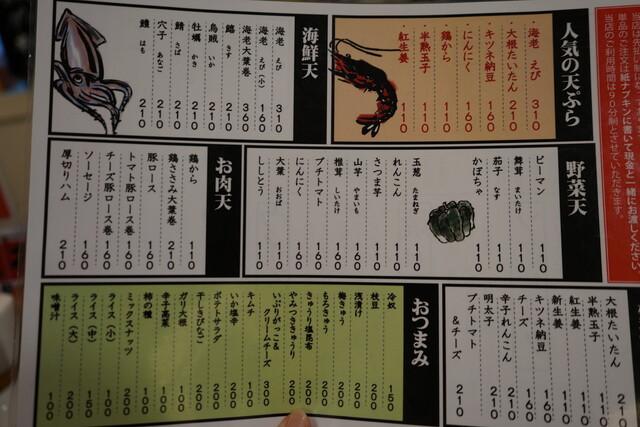 当店は先
単品のご注文は紙ナプキンに書いて現金と一緒にお渡しください。
当店のご利用時間は90分制とさせていただきます。
人気の天ぷら
海老 えび 310
大根たいたん 210
キツネ納豆 160
にんにく 160
鶏から 110
半熟玉子 110
紅生姜 110
海鮮天
海老 えび 310
海老 えび (小) 160
海老大葉巻 360
鱚 きす 210
烏賊 いか 210
牡蠣 かき 210
鯖 さば 210
穴子 あなご 210
鱧 はも 210
野菜天
ピーマン 110
舞茸 まいたけ 110
茄子 なす 110
かぼちゃ 110
玉葱 たまねぎ 110
れんこん 110
さつま芋 110
山芋 やまいも 160
椎茸 しいたけ 160
プチトマト 160
にんにく 160
大葉 おおば 110
ししとう 110
お肉天
鶏から 110
鶏ささみ大葉巻 210
豚ロース 160
トマト豚ロース巻 160
チーズ豚ロース巻 160
ソーセージ 160
厚切りハム 210
大根たいたん 210
半熟玉子 110
紅生姜 110
新生姜 110
キツネ納豆 160
チーズ 160
辛子れんこん 210
明太子 210
プチトマト
&チーズ 210
おつまみ
冷奴 150
枝豆 200
浅漬け 200
梅きゅう 200
もろきゅう 200
きゅうり塩昆布 200
やみつききゅうり 200
いぶりがっこ&
クリームチーズ 300
キムチ 100
いか塩辛 200
ポテトサラダ 200
干しきびなご 200
ガリ大根 100
辛子高菜 100
柿の種 100
ミックスナッツ 200
ライス (小) 100
ライス (中) 150
ライス (大) 200
味噌汁 100